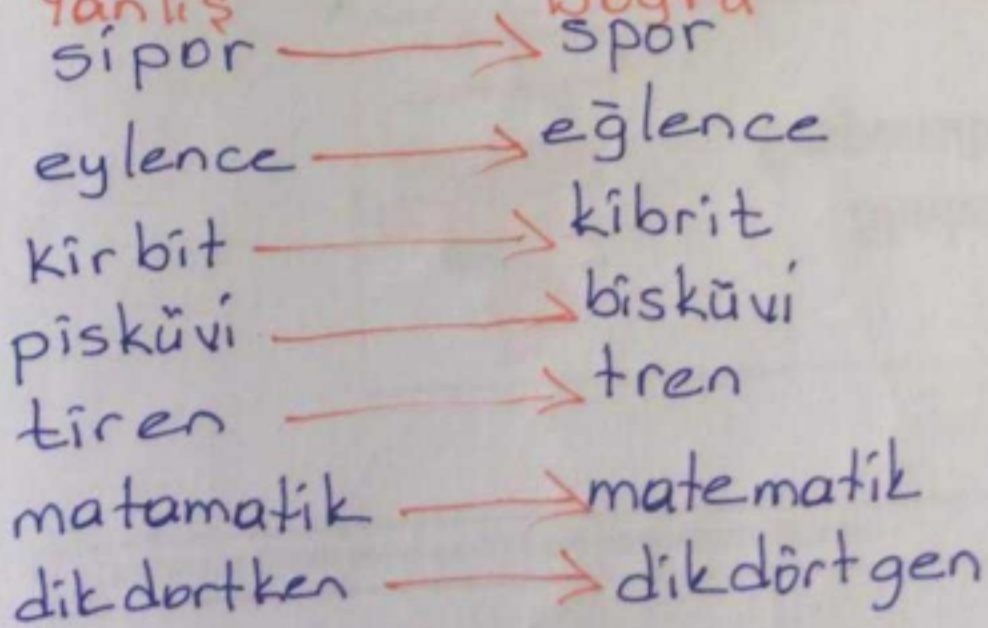 Yanlış Doğru
sipor → spor
eylence → eğlence
kirbit → kibrit
pisküvi → bisküvi
tiren → tren
matamatik → matematik
dikdortken → dikdörtgen